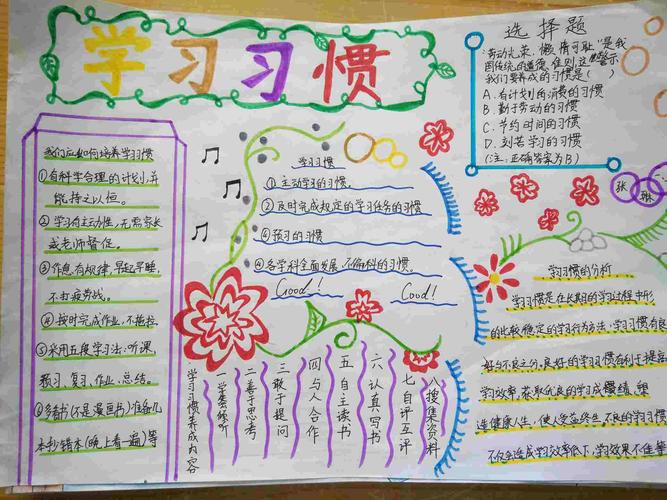 学习习惯
选择题
"劳动光荣、懒惰可耻"是我
国传统的道德准则,这警示
我们要养成的习惯是( )
A.有计划的消费的习惯
B.勤于劳动的习惯
C.节约时间的习惯
D.刻苦学习的习惯
(注:正确答案为B)
张 琳
我们应如何培养学习习惯
①有科学合理的计划,并
能持之以恒。
②学习有主动性,无需家长
或老师督促。
③作息有规律,早起早睡,
不打疲劳战。
④按时完成作业,不拖拉
⑤采用五段学习法:听课
预习、复习、作业、总结。
⑥多看书(不是漫画书)准备几
本抄错本(晚上看一遍)等
学习习惯
①主动学习的习惯。
②及时完成规定的学习任务的习惯
④预习的习惯
④各学科全面发展、不偏科的习惯。
Good! Cool!
学习习惯养成内容
一学会倾听
二善于思考
三敢于提问
四与人合作
五自主读书
六认真写书
七自评互评
八搜集资料
学习惯的分析
学习惯是在长期的学习过程中形
的比较稳定的学习行为方法,学习习惯有良
好与不良之分。良好的学习习惯有利于提高
学习效率,获取优良的学习成绩,塑
造健康人生,使人受益终生。不良的学习习惯
不仅造成学习效率低下,学习效果不佳等